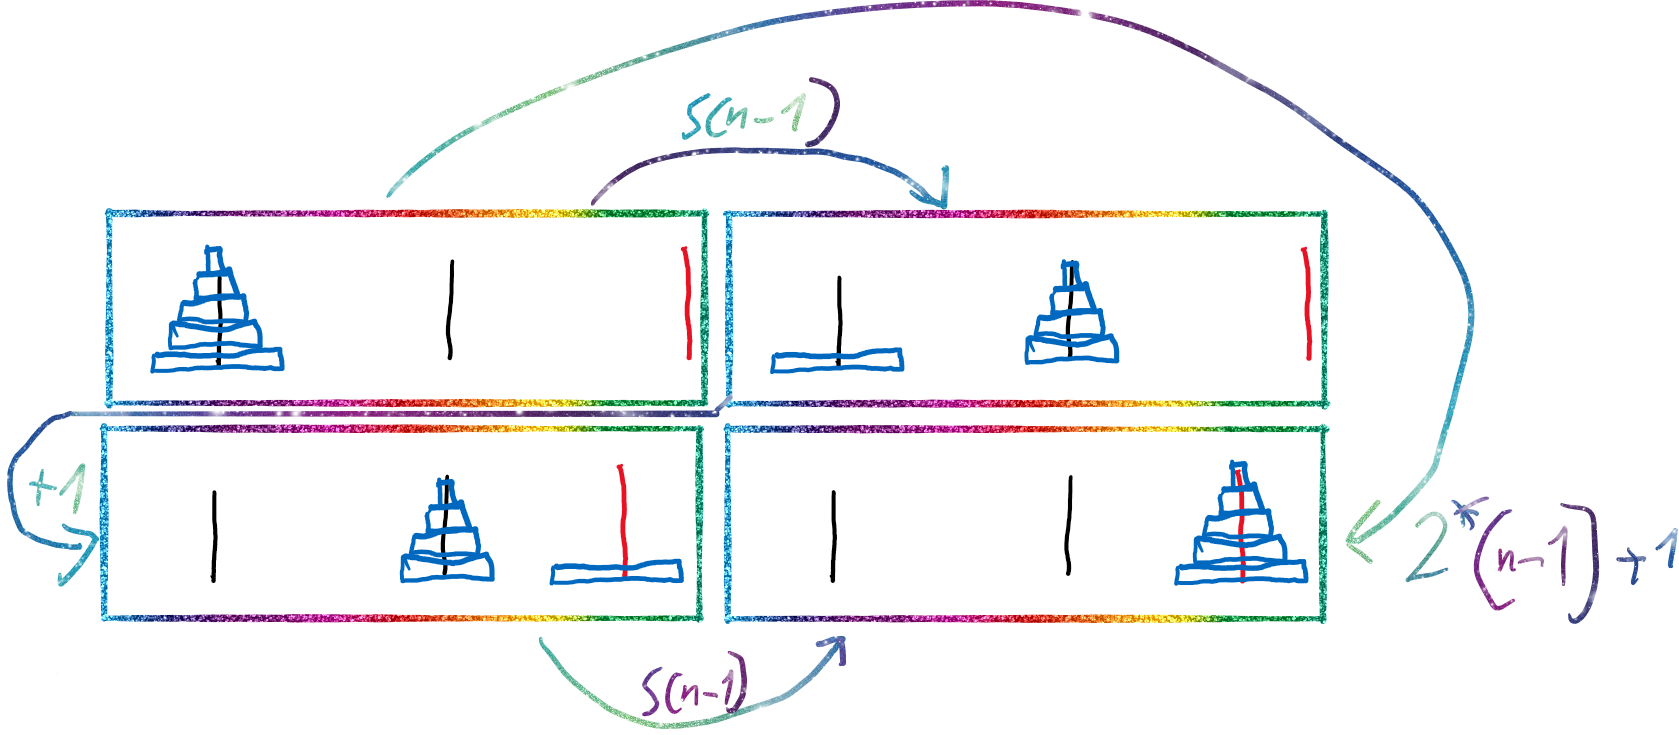 S(n-1)
+1
2*(n-1)+1
S(n-1)